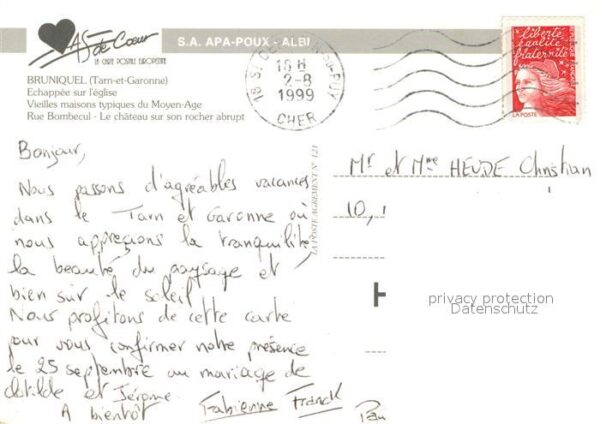 AS de Cœur
LA CARTE POSTALE EUROPEENNE
S.A. APA-POUX - ALBI
BRUNIQUEL (Tarn-et-Garonne)
Echappée sur l'église
Vieilles maisons typiques du Moyen-Age
Rue Bombecul - Le château sur son rocher abrupt
18 H
2-8
1999
CHER
liberté
égalité
fraternité
LA POSTE
Bonjour,
Nous passons d'agréables vacances
dans le Tarn et Garonne où
nous apprécions la tranquilité,
la beauté du paysage et
bien sur le soleil.
Nous profitons de cette carte
pour vous confirmer notre présence
le 25 septembre au mariage de
Clotilde et Jérome.
A bientôt Fabienne Franck
Mr et Mme HEUDE Christian
10,
H
privacy protection
Datenschutz